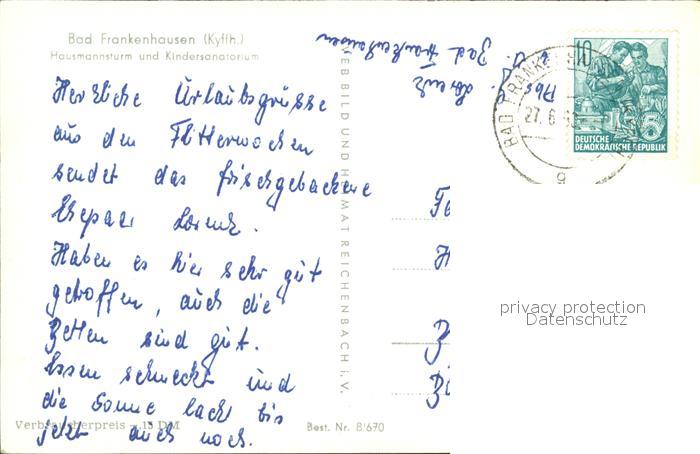 Bad Frankenhausen (Kyffh.)
Hausmannsturm und Kindersanatorium
Herzliche Urlaubsgrüsse
aus den Flitterwochen
sendet das frischgebackene
Ehepaar Lorenz.
Haben es hier sehr gut
getroffen, auch die
Betten sind gut.
Essen schmeckt und
die Sonne lacht bis
jetzt auch noch.
Verbraucherpreis -,15 DM
Best. Nr. 8/670
VEB BILD UND HEIMAT REICHENBACH i. V.
Abs.
Lorenz
Bad Frankenhausen
BAD FRANKENHAUSEN
27. 6.
g
10
DEUTSCHE
DEMOKRATISCHE REPUBLIK
privacy protection
Datenschutz